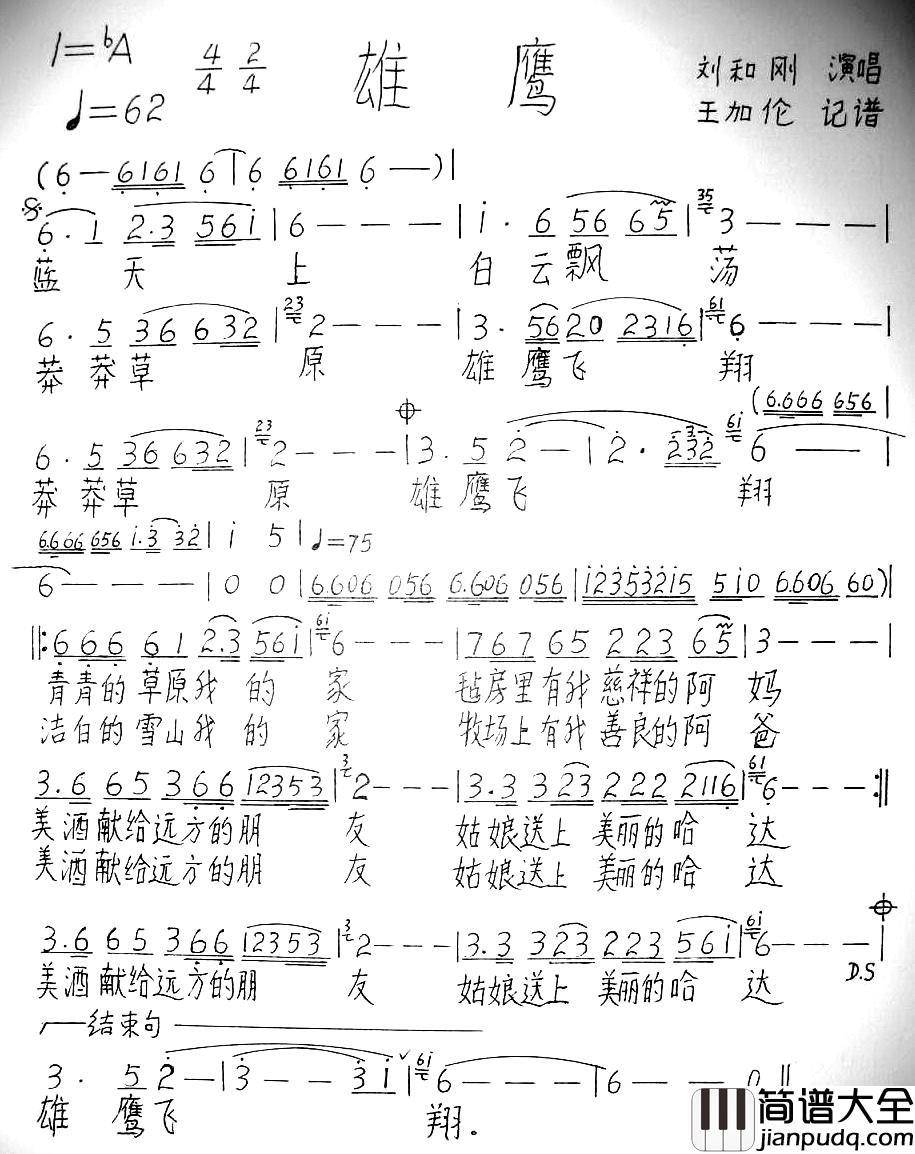 1=♭A 4/4 2/4 雄鹰 刘和刚 演唱
♩=62 王加伦 记谱
(6 — 6161 6 | 6 6161 6 —)|
6·1 2·3 561 | 6 - - - | 1· 6 56 65 | 35 3 - - - |
蓝天上 白云飘荡
6·5 36 632 | 23 2 - - - | 3· 56 20 2316 | 61 6 - - - |
莽莽草原 雄鹰飞翔
(6.666 656 |
6·5 36 632 | 23 2 - - - | 3· 5 2 — | 2· 232 61 6 — — |
莽莽草原 雄鹰飞翔
6.666 656 1.3 32 | 1 5 | ♩=75
6 - - - | 0 0 | 6.606 056 6.606 056 | 12353215 510 6.606 60)|
‖: 666 61 2.3 561 | 61 6 - - - | 767 65 223 65 | 3 - - - |
青青的草原我的家 毡房里有我慈祥的阿妈
洁白的雪山我的家 牧场上有我善良的阿爸
3.6 65 366 12353 | 3 2 - - - | 3.3 323 222 2116 | 61 6 - - - :‖
美酒献给远方的朋友 姑娘送上美丽的哈达
美酒献给远方的朋友 姑娘送上美丽的哈达
3.6 65 366 12353 | 3 2 - - - | 3.3 323 223 561 | 61 6 - - - |
美酒献给远方的朋友 姑娘送上美丽的哈达 D.S
结束句
3· 5 2 — | 3 - - 3 1 | 61 6 - - - | 6 - - 0 ‖
雄鹰飞翔.
简谱大全
jianpudq.com